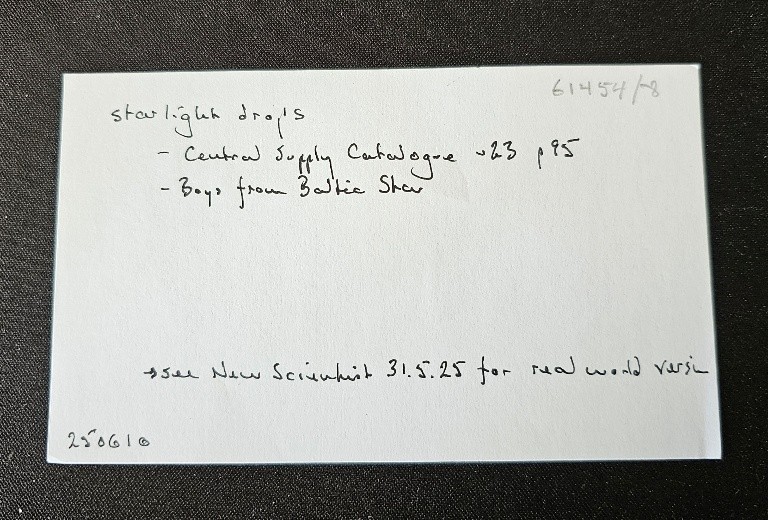 61454/-8
starlight drops
- Central Supply Catalogue v23 p95
- Boys from Baltic Star
→see New Scientist 31.5.25 for real world versin
250610